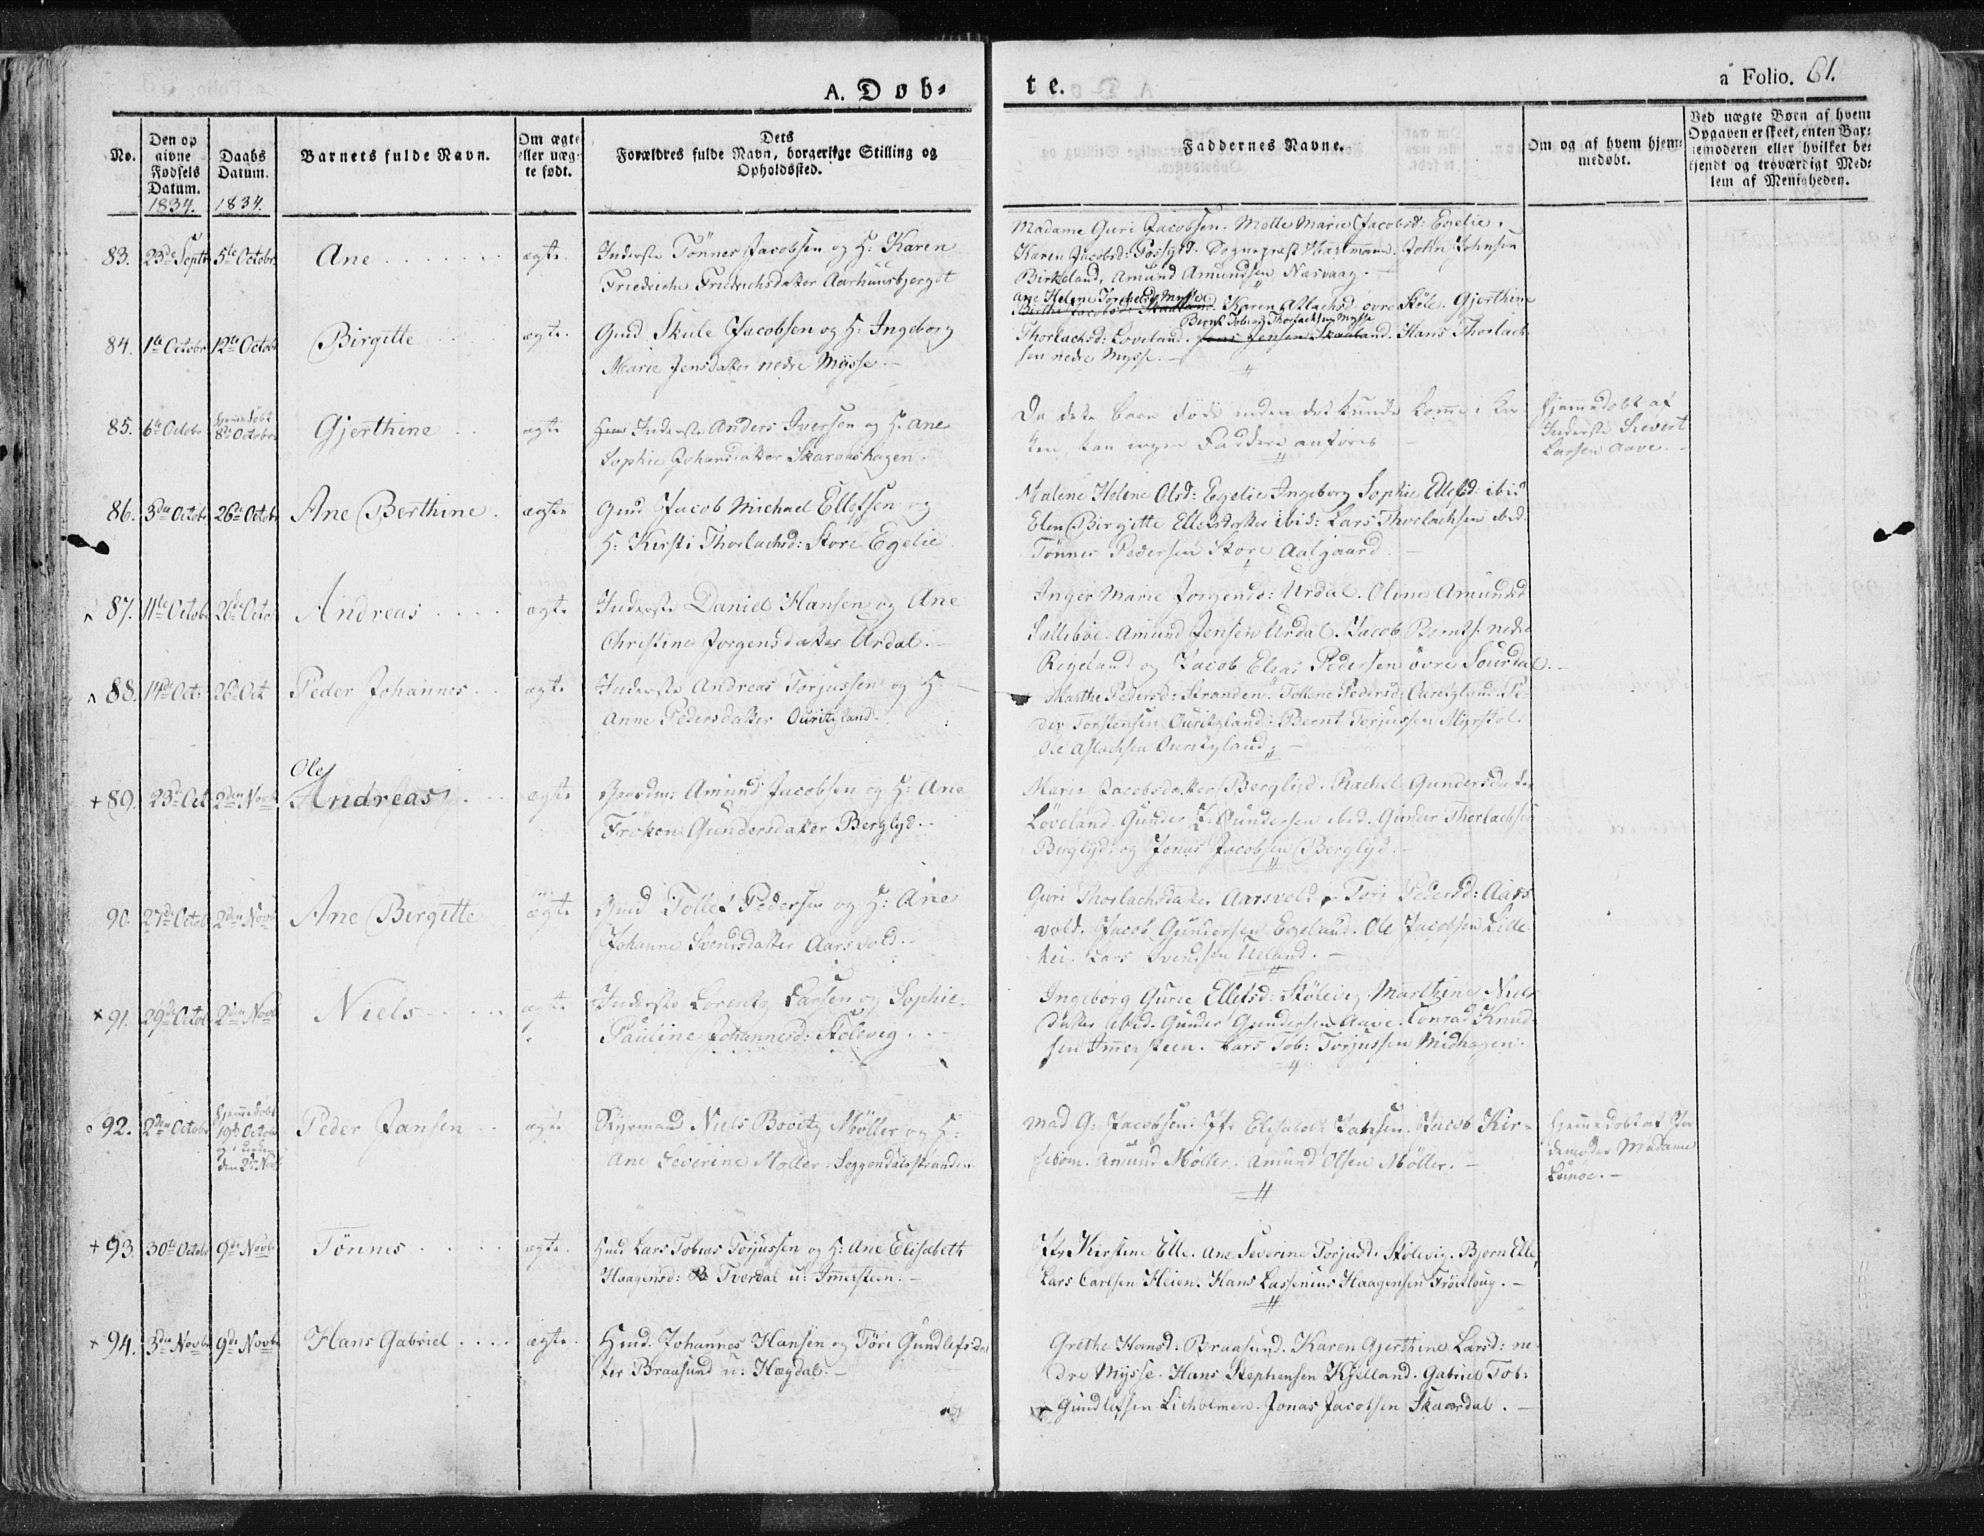 A. Døb-
te.
a Folio. 61.
No.
Den opgivne Fødsels Datum. 1834.
Daabs Datum. 1834.
Barnets fulde Navn.
Om ægte eller uægte født.
Dets Forældres fulde Navn, borgerlige Stilling og Opholdssted.
Faddernes Navne.
Om og af hvem hjemmedøbt.
Ved uægte Børn af hvem Opgaven er skeet, enten Barnemoderen eller hvilket bekjendt og troværdigt Medlem af Menigheden.
83. 23de Septbr 5te Octobr Ane ægte
Inderste Tönnes Jacobsen og H: Karen
Friedriche Friedrichsdatter Aarhuusbjerget
Madame Guri Jacobsen. Malle Marie Jacobsd: Egelie,
Karen Jacobsd: Sognepræst John Johnsen
Birkeland, Amund Amundsen Næsvaag.
84. 1te Octobr 12te Octobr Birgitte ægte
Gmd Skule Jacobsen og H: Ingeborg
Marie Jensdatter nedre Mysse
Ane Helene Torkelsd Mysse
Birthe Jacobsd: Skaaland. Karen Atlachsd övre Støle. Gjerthine
Bernt Tobias Thorlachsen Mysse
Thorlachsd: Loveland. Jens Jensen Skaaland. Hans Thorlach-
sen nedre Mysse.
85. 6te Octobr Hjemmedøbt 8de Octobr Gjerthine ægte
Inderste Anders Iversen og H: Ane
Sophie Johansdatter Skaraashagen
Da dette Barn døde inden det kunde komme i Kir-
ken, kan ingen Faddere anføres
Hjemmedøbt af
Inderste Sievert
Larsen Aave.
86. 3die Octobr 26de Octobr Ane Berthine ægte
Gmd Jacob Michael Ellefsen og
H: Kirsti Thorlachsd: Store Egelie
Malene Helene Olsd: Egelie Ingeborg Sophie Ellefsd: ibid
Elen Birgitte Ellefsdatter ibid: Lars Thorlachsen ibid:
Tönnes Pedersen Store Aalgaard
87. 11te Octobr 26de Octo Andreas ægte
Inderste Daniel Hansen og Ane
Christine Jorgensdatter Urdal.
Inger Marie Jorgensd: Urdal. Oline Amundsd
Salleböe. Amund Jensen Urdal. Jacob Bernts: nedre
Regeland og Jacob Elias Pedersen övre Sourdal.
88. 14de Oct: 26de Oct Peder Johannes ægte
Inderste Andreas Torjussen og H
Anne Pedersdatter Ouritzland.
Malthe Pedersd: Stranden. Tollene Pedersd: Ouritzland. Pe-
der Torstensen Ouritzland: Bernt Torjussen Myrstöl.
Ole Aslachsen Ouritzland
+ 89. 23de Oct 2den Novbr Ole
Andreas ægte
Gaardm: Amund Jacobsen og H: Ane
Fröken Gundersdatter Berglyd.
Marie Jacobsdatter Berglyd. Rachel Gundersdatter
Löveland. Gunder Gundersen ibid. Gunder Thorlachsen
Berglyd. og Jonas Jacobsen Berglyd.
90. 27de Octob 2den Novb Ane Birgitte ægte
Gmd Tollef Pedersen og H: Ane
Johanne Svendsdatter Aarsvold.
Guri Thorlachsdatter Aarsvold. Tori Pedersd: Aars-
vold. Jacob Gundersen Egeland. Ole Jacobsen Lille
hei. Lars Svendsen Ueland.
× 91. 29de Octobr 2den Novb Niels ægte
Inderste Lorentz Larsen og Sophie
Pauline Johannesd: Stölevig.
Ingeborg Gurie Ellefsd: Stölevig. Marthine Niels
datter ibid. Gunder Gundersen Aave. Conrad Knud-
sen Immersteen. Lars Tob: Torjussen Midhagen.
92. 2den Octobr Hjemmedøbt 19de Octobr den 2den Novb Peder Jansen ægte
Styrmand Niels Bovitz Möller og H:
Ane Severine Möller. Soggendalsstranden
Mad G: Jacobsen. Jfr Elisabeth Jansen. Jacob Kir-
sebom. Amund Möller. Amund Olsen Möller.
Hjemmedøbt af Jor
demoder Madame
+ 93. 30te Octobr 9de Novb Tönnes ægte.
Hmd Lars Tobias Torjussen og H: Ane Elisabeth
Haagensd: Tverdal u: Immersteen.
Jfr Kirstine Elle. Ane Severine Torjusd: Stölevig. Bjorn Elle,
Lars Carlsen Heien. Hans Lassenius Haagensen Fröitloug.
× 94. 3die Novbr 9de Novb Hans Gabriel ægte.
Hmd. Johannes Hansen og Töri Gundlefsdat
ter Braasund u: Hægdal.
Grethe Hansd: Braasund. Karen Gjerthine Larsd: ne-
dre Mysse. Hans Stephensen Kjelland. Gabriel Tob:
Gundlefsen Lieholmen. Jonas Jacobsen Skaardal.